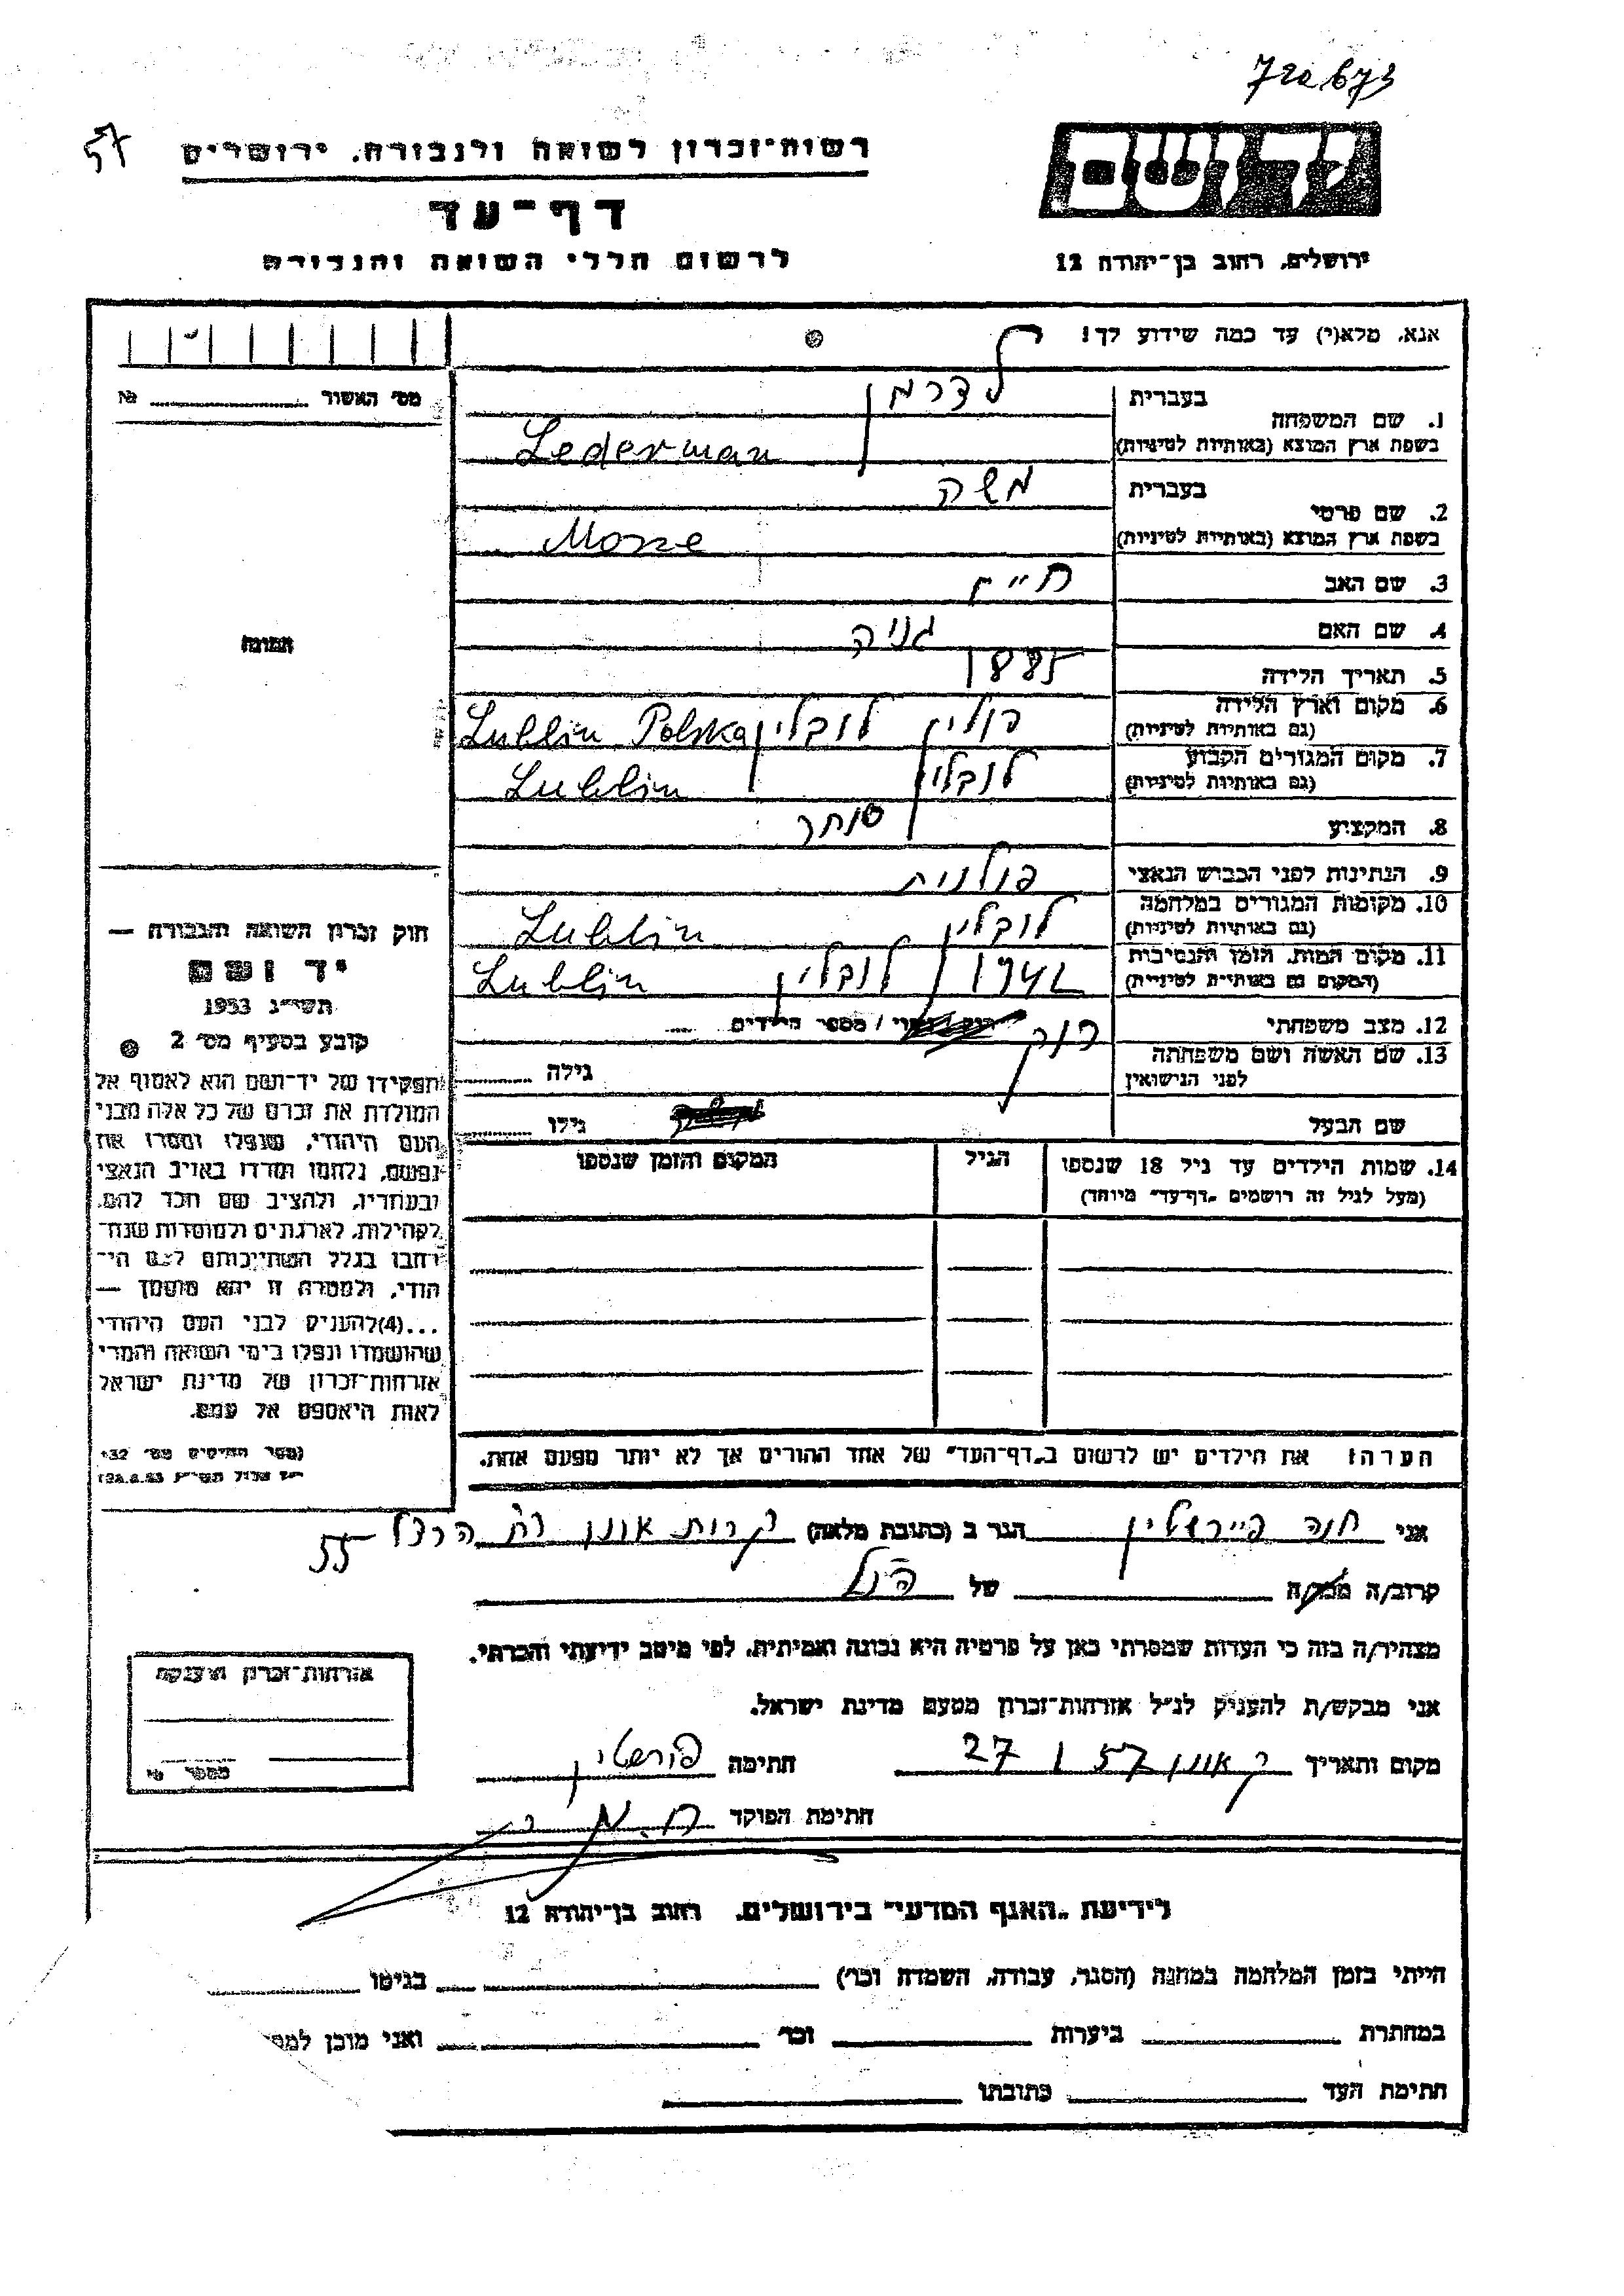 57
רשות־זכרון לשואה ולגבורה, ירושלים
דף־עד
לרשום חללי השואה והגבורה
יד ושם
ירושלים, רחוב בן־יהודה 12
אנא, מלא(י) עד כמה שידוע לך!
מס׳ האשור № 
1. שם המשפחה
בעברית לדרמן
בשפת ארץ המוצא (באותיות לטיניות) Lederman
2. שם פרטי
בעברית משה
בשפת ארץ המוצא (באותיות לטיניות)
3. שם האב חיים
4. שם האם גניה
5. תאריך הלידה 1885
6. מקום וארץ הלידה פולין לובלין Lublin Polska
(גם באותיות לטיניות)
7. מקום המגורים הקבוע לובלין Lublin
(גם באותיות לטיניות)
8. המקצוע סוחר
9. הנתינות לפני הכבוש הנאצי פולנית
10. מקומות המגורים במלחמה לובלין Lublin
(גם באותיות לטיניות)
11. מקום המות, הזמן והנסיבות 1942 לובלין Lublin
(המקום גם באותיות לטיניות)
12. מצב משפחתי רוק / מספר הילדים
13. שם האשה ושם משפחתה
לפני הנישואין
גילה
שם הבעל
גילו
14. שמות הילדים עד גיל 18 שנספו
(מעל לגיל זה רושמים „דף־עד״ מיוחד)
הגיל
המקום והזמן שנספו
הערה: את הילדים יש לרשום ב„דף־העד״ של אחד ההורים אך לא יותר מפעם אחת.
תמונה
חוק זכרון השואה והגבורה —
יד ושם
תשי״ג 1953
קובע בסעיף מס׳ 2
תפקידו של יד־ושם הוא לאסוף אל
המולדת את זכרם של כל אלה מבני
העם היהודי, שנפלו ומסרו את
נפשם, נלחמו ומרדו באויב הנאצי
ובעוזריו, ולהציב שם וזכר להם,
לקהילות, לארגונים ולמוסדות שנח־
רבו בגלל השתייכותם לעם הי־
הודי, ולמטרה זו יהא מוסמך —
...(4)להעניק לבני העם היהודי
שהושמדו ונפלו בימי השואה והמרי
אזרחות־זכרון של מדינת ישראל
לאות היאספם אל עמם.
אני חנה הגר ב (כתובת מלאה) קרית אונו רח׳ הרצל 55
קרוב/ה של הנ״ל
מצהיר/ה בזה כי העדות שמסרתי כאן על פרטיה היא נכונה ואמיתית, לפי מיטב ידיעתי והכרתי.
אני מבקש/ת להעניק לנ״ל אזרחות־זכרון מטעם מדינת ישראל.
מקום ותאריך ק. אונו 27 1 57 חתימה
חתימת הפוקד
אזרחות־זכרון הוענקה
מספר
לידיעת „האגף המדעי״ בירושלים, רחוב בן־יהודה 12
הייתי בזמן המלחמה במחנה (הסגר, עבודה, השמדה וכו׳) בגיטו
במחתרת ביערות וכו׳ ואני מוכן
חתימת העד כתובתו